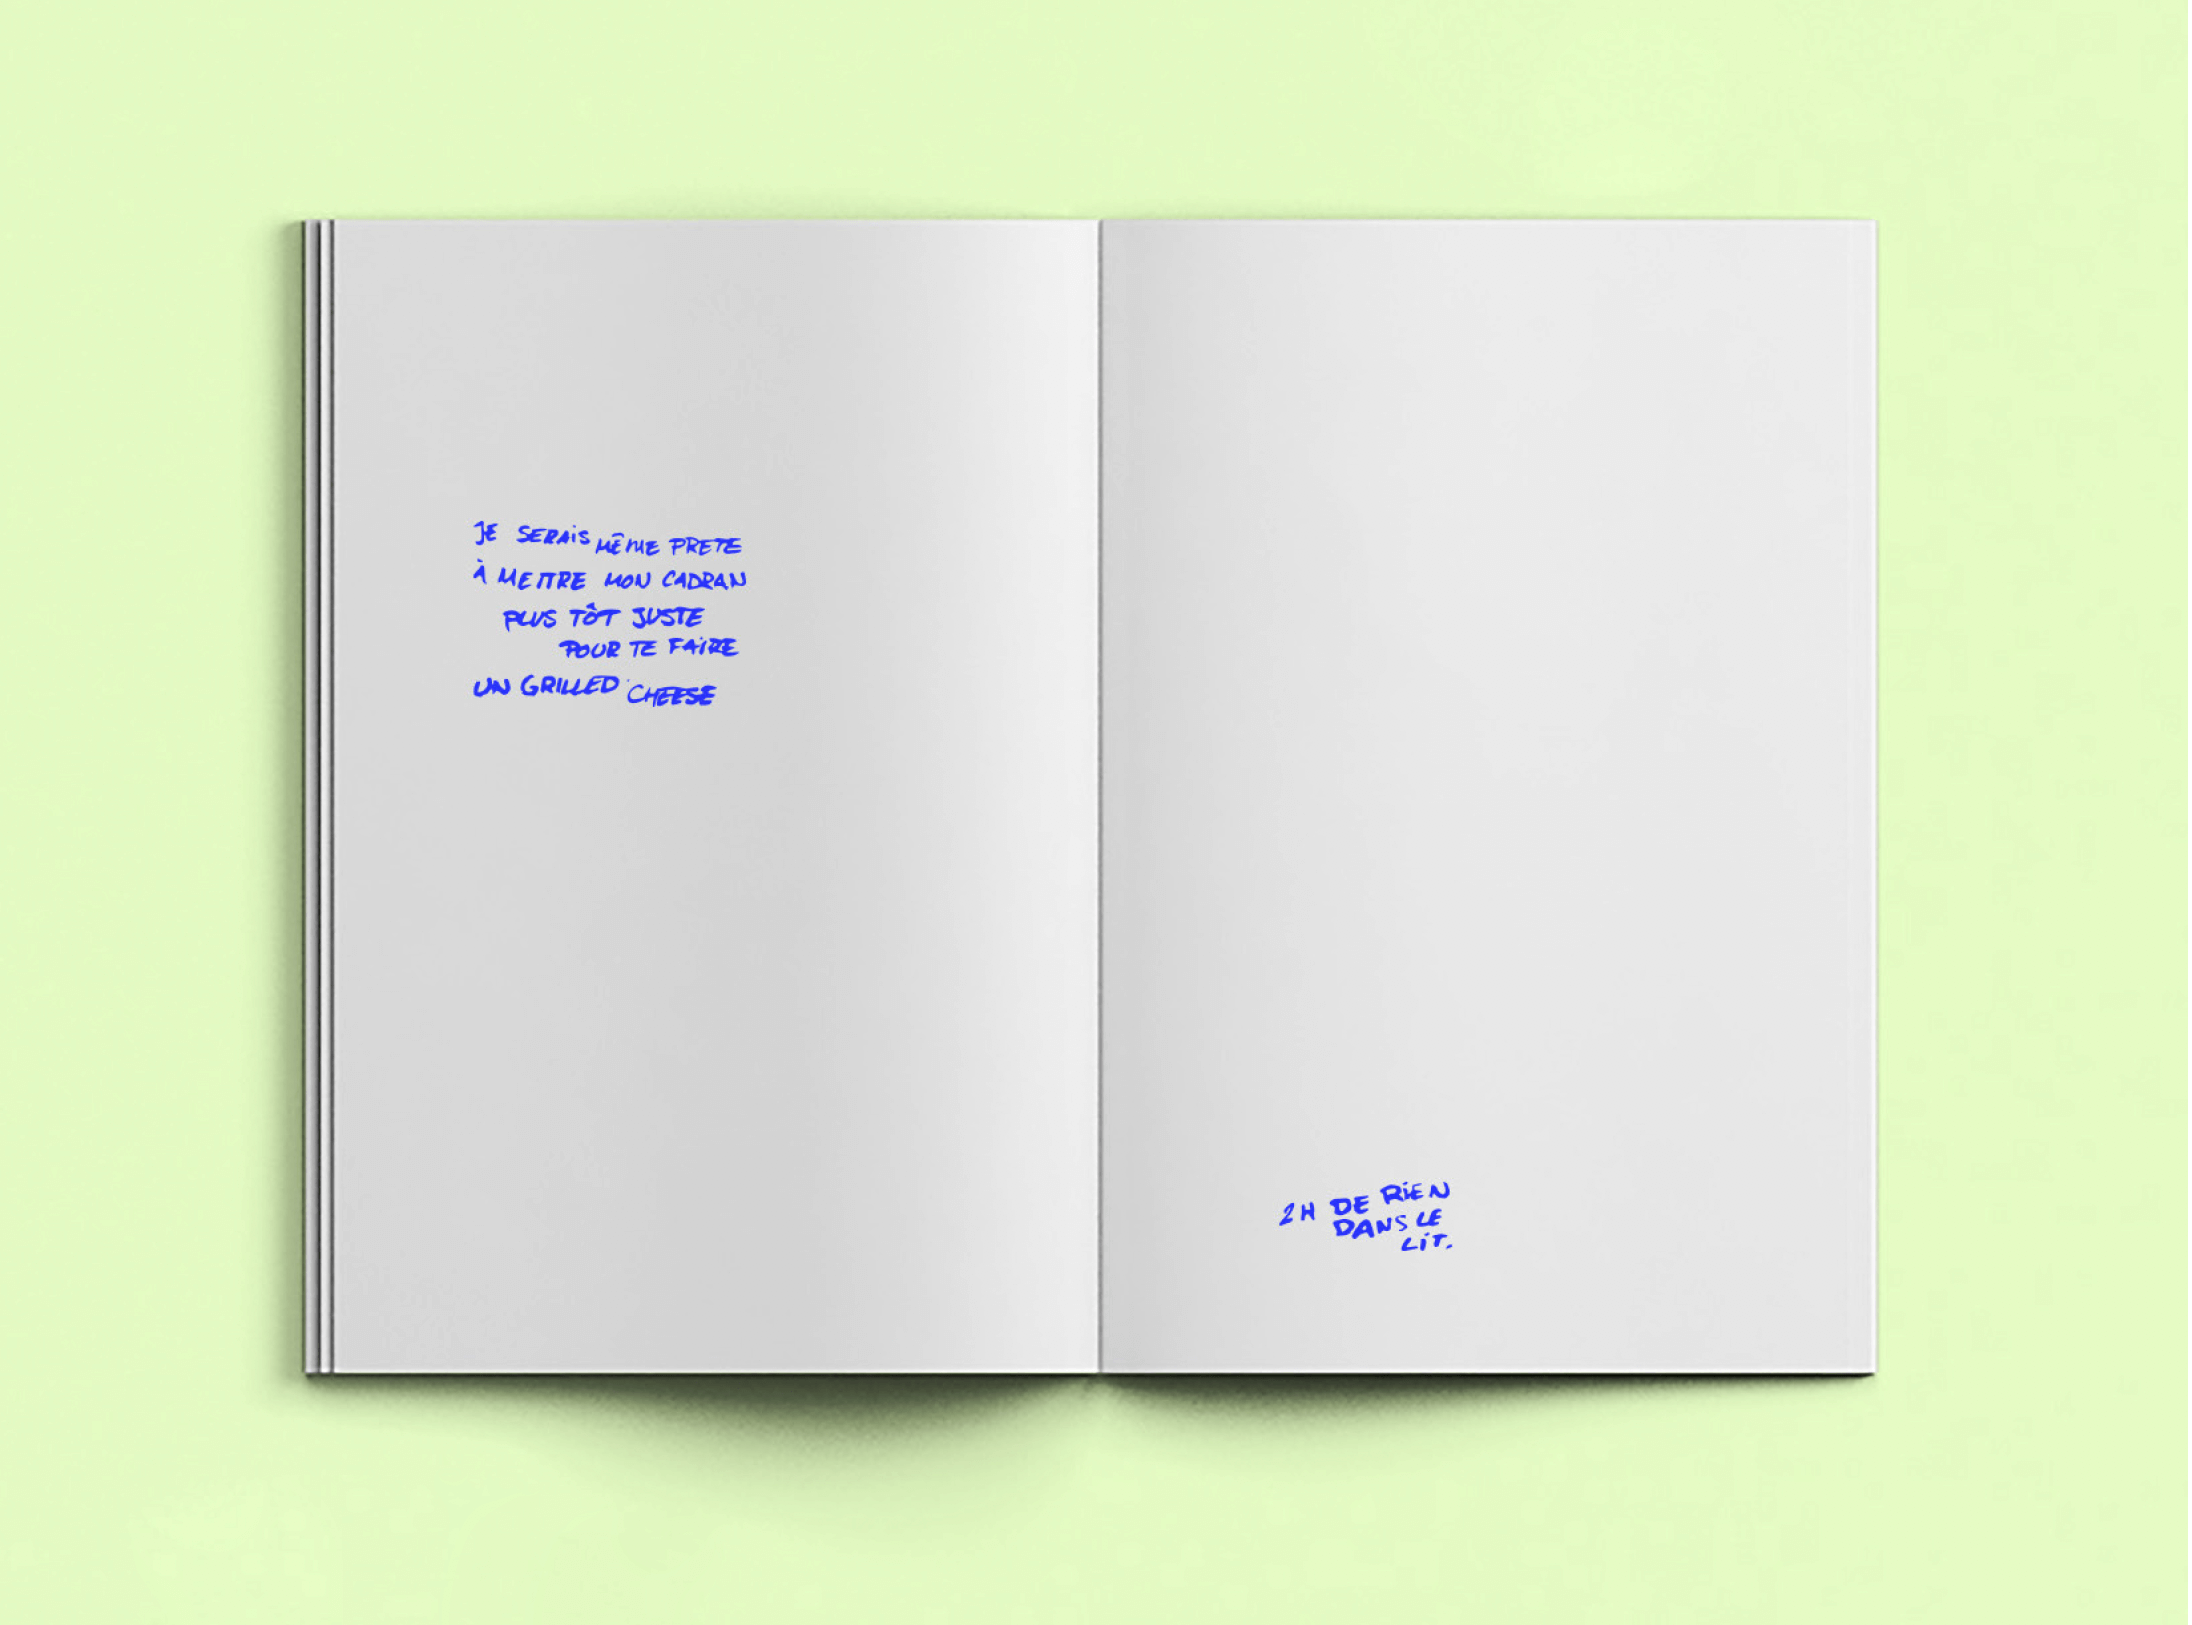 JE SERAiS MÊME PRETE
À METTRE MON CADRAN
PLUS TÔT JUSTE
POUR TE FAiRE
UN GRILLED CHEESE
2H DE RiEN
DANS LE
LiT.